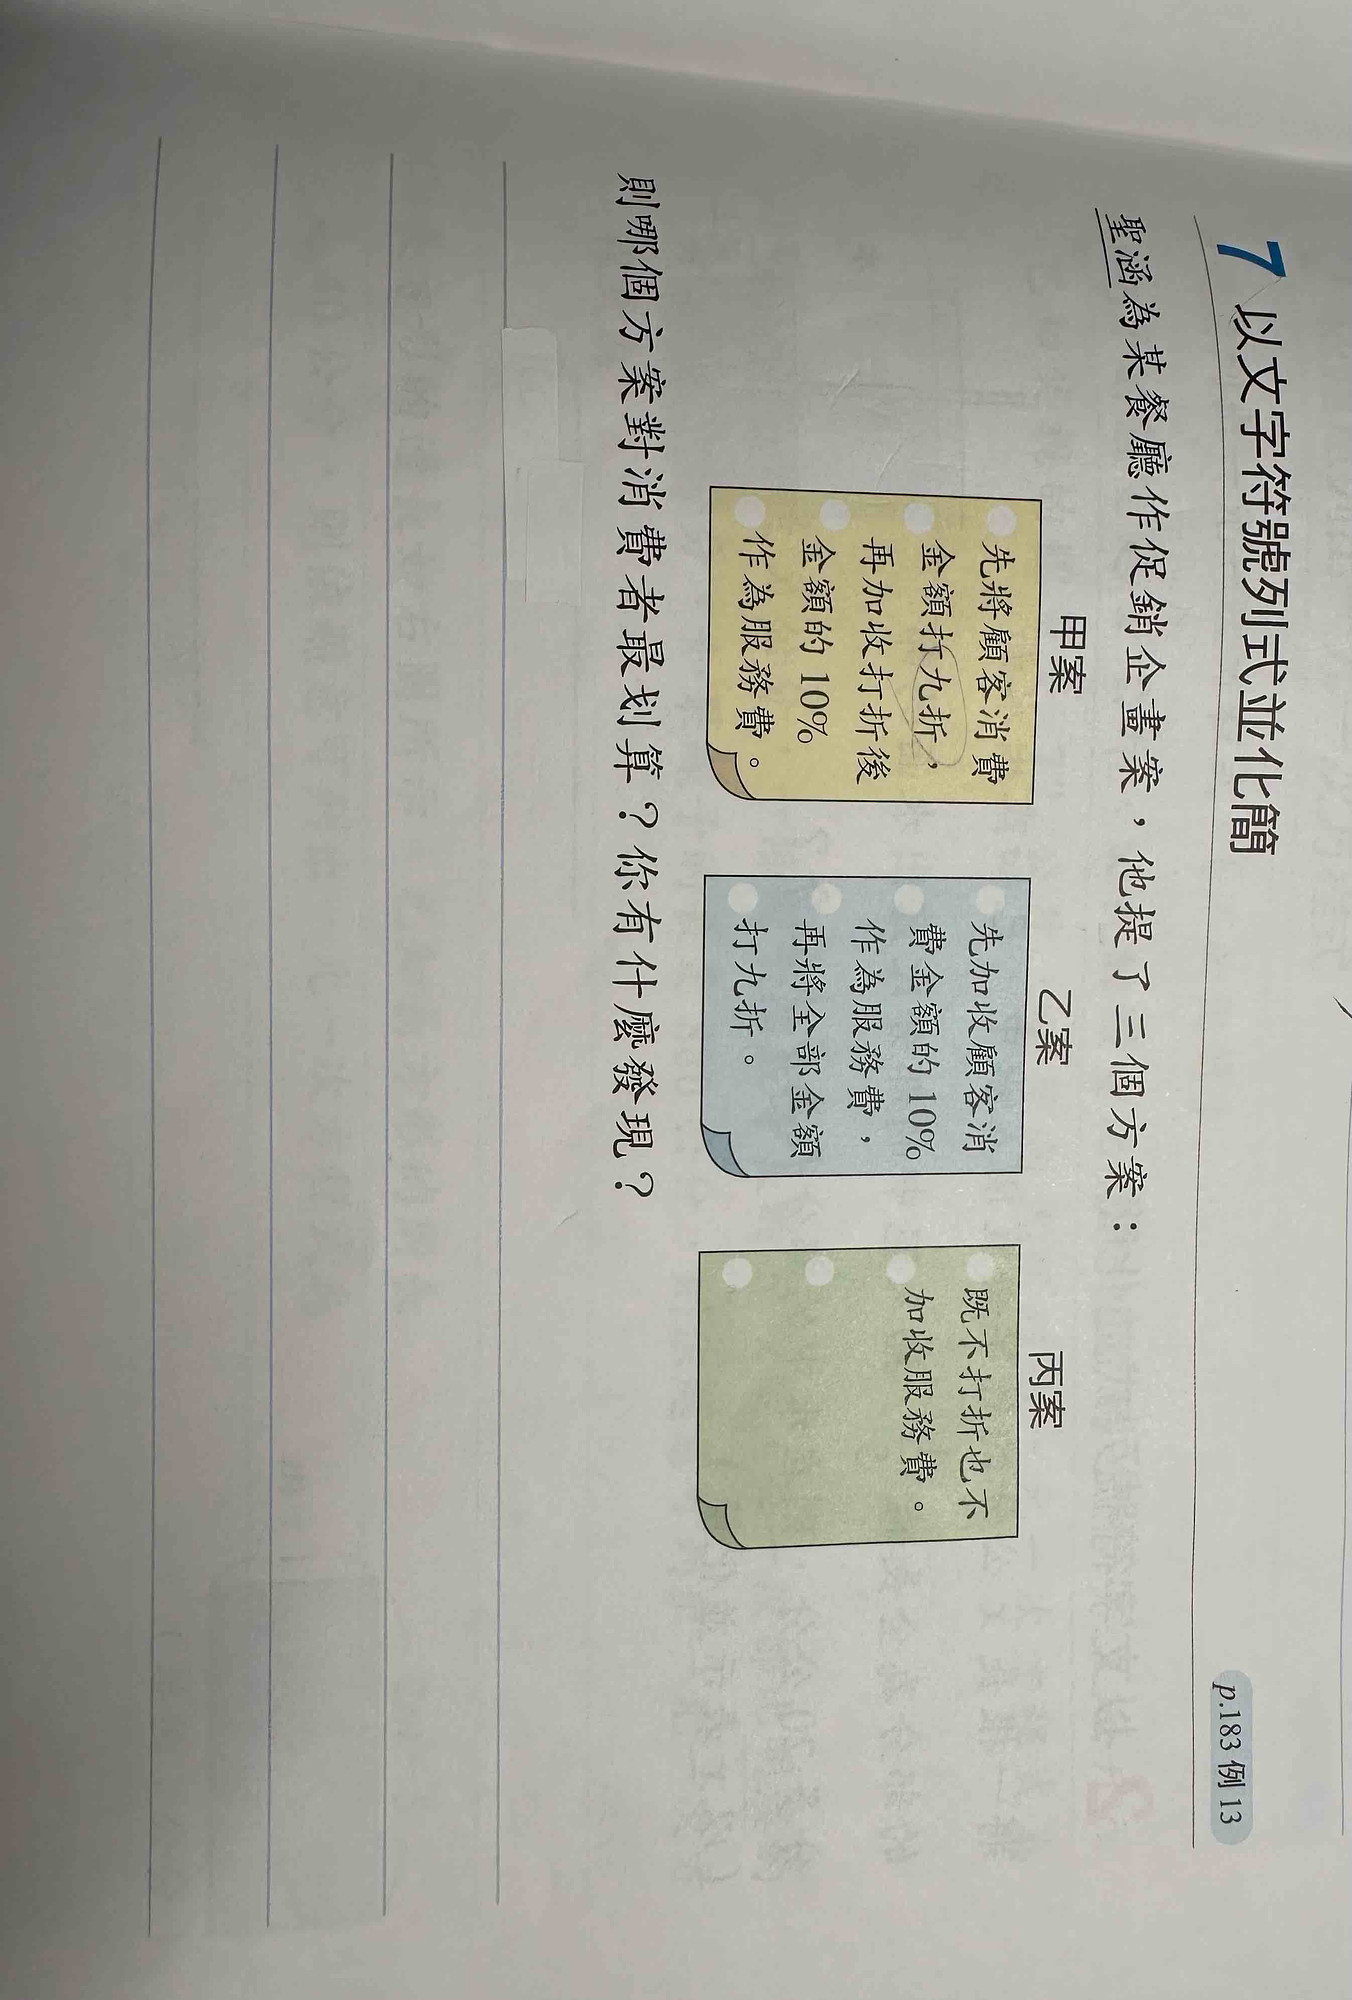 7 以文字符號列式並化簡
p.183 例 13
聖涵為某餐廳作促銷企畫案，他提了三個方案：
甲案
先將顧客消費
金額打九折，
再加收打折後
金額的 10%
作為服務費。
乙案
先加收顧客消
費金額的 10%
作為服務費，
再將全部金額
打九折。
丙案
既不打折也不
加收服務費。
則哪個方案對消費者最划算？你有什麼發現？